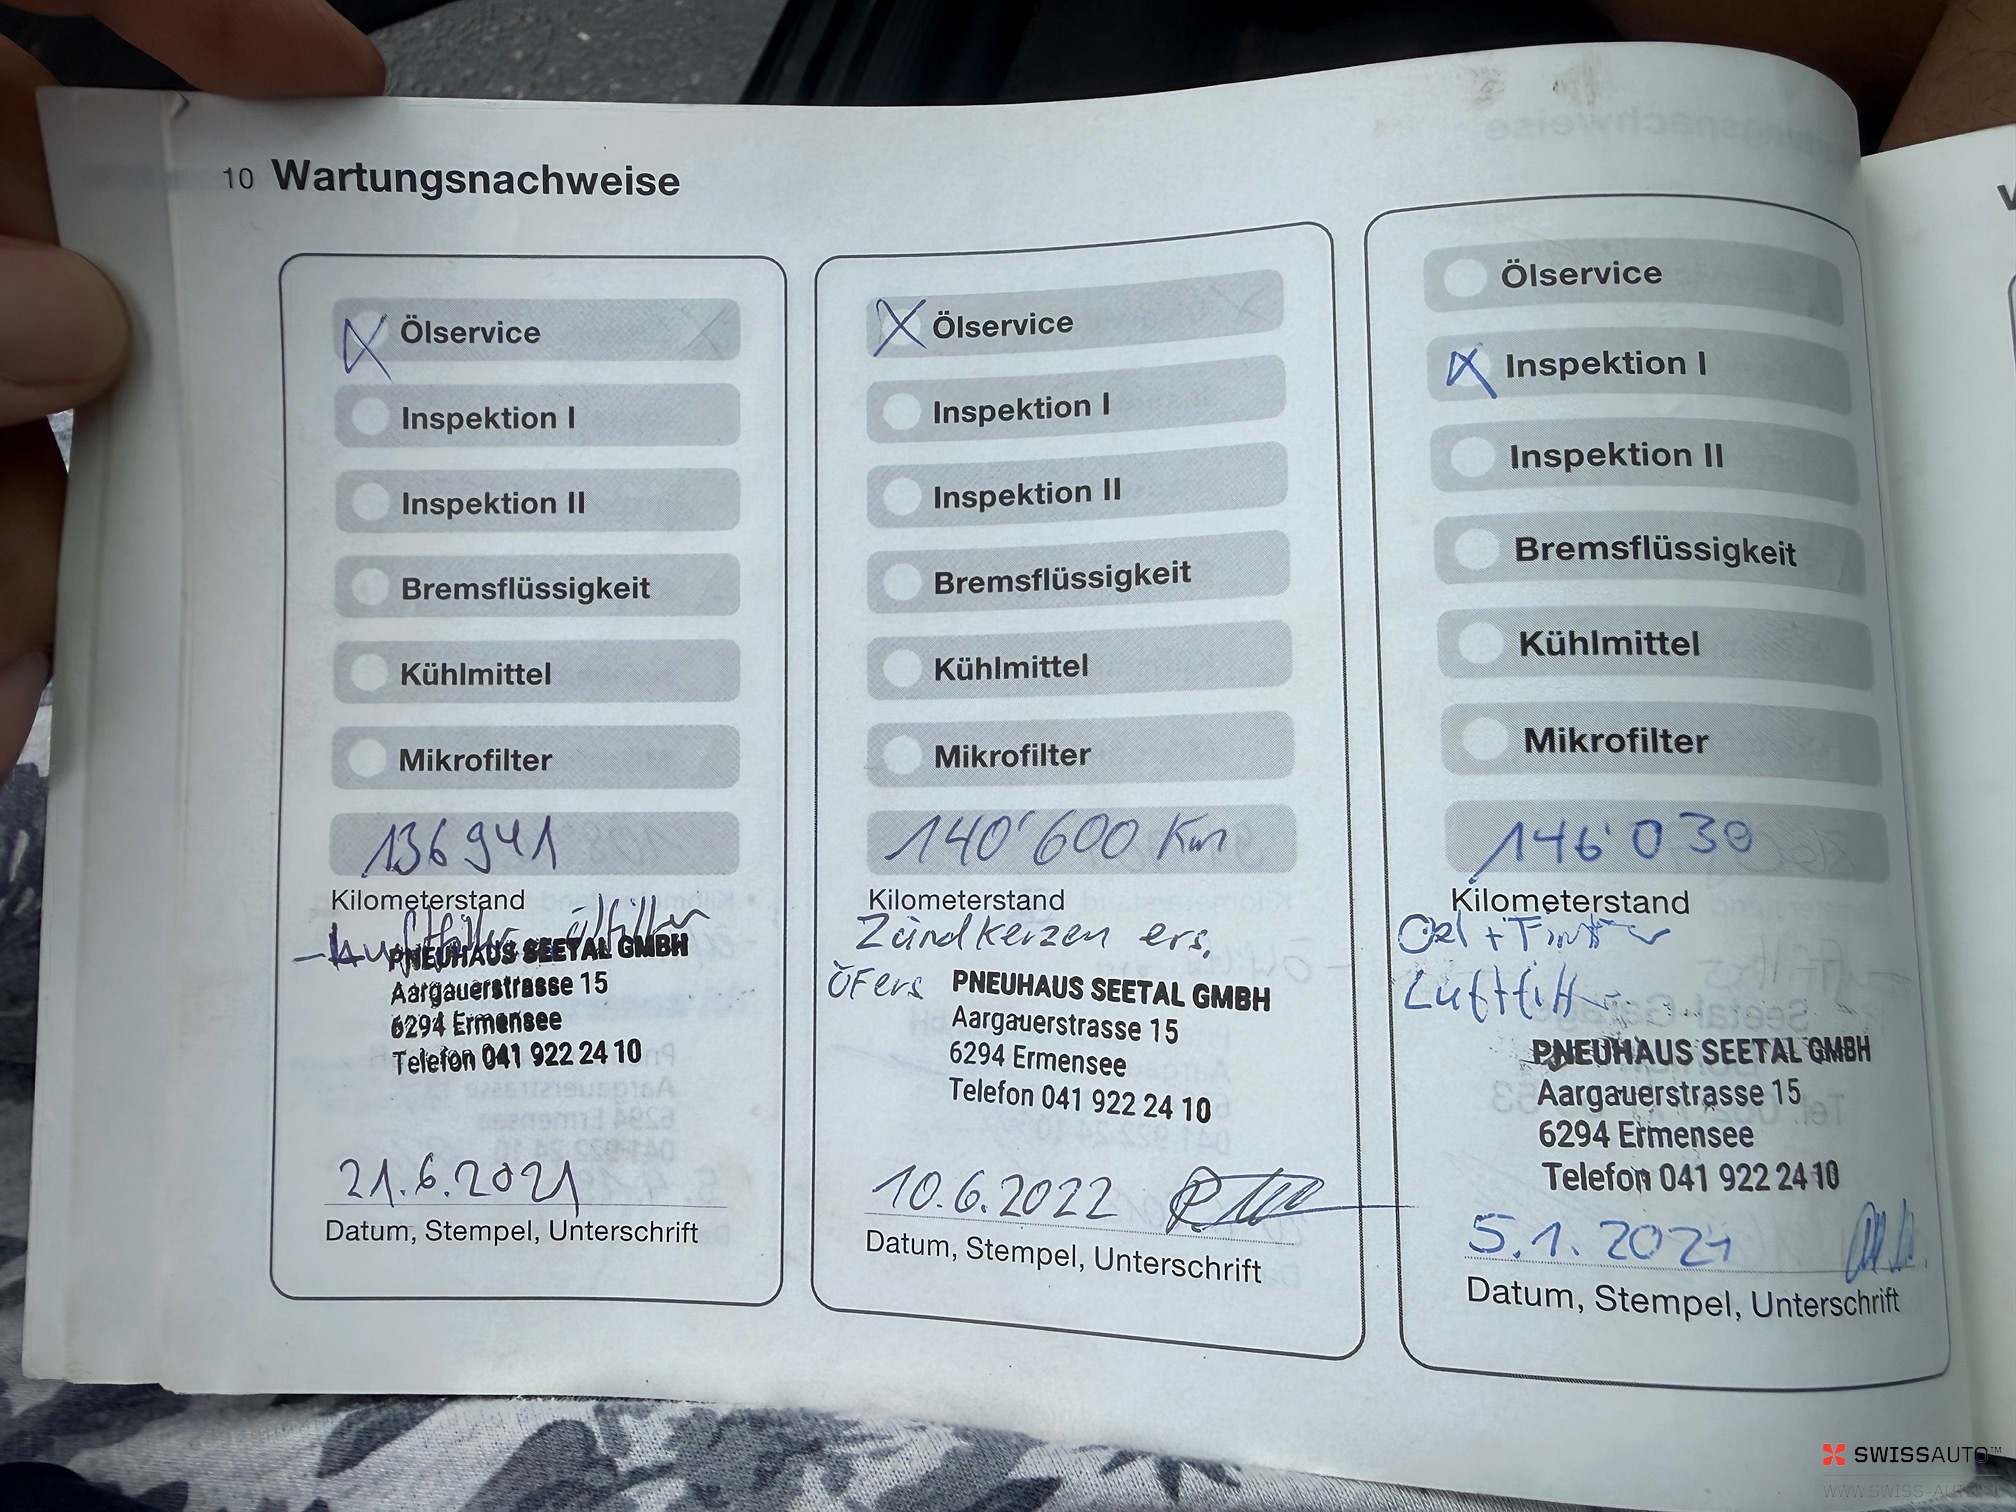 10 Wartungsnachweise
Ölservice
Inspektion I
Inspektion II
Bremsflüssigkeit
Kühlmittel
Mikrofilter
136941
Kilometerstand
Luftfilter ölfilter
PNEUHAUS SEETAL GMBH
Aargauerstrasse 15
6294 Ermensee
Telefon 041 922 24 10
21.6.2021
Datum, Stempel, Unterschrift
Ölservice
Inspektion I
Inspektion II
Bremsflüssigkeit
Kühlmittel
Mikrofilter
140'600 Km
Kilometerstand
Zündkerzen ers.
ÖF ers
PNEUHAUS SEETAL GMBH
Aargauerstrasse 15
6294 Ermensee
Telefon 041 922 24 10
10.6.2022
Datum, Stempel, Unterschrift
Ölservice
Inspektion I
Inspektion II
Bremsflüssigkeit
Kühlmittel
Mikrofilter
146'030
Kilometerstand
Oel +
PNEUHAUS SEETAL GMBH
Aargauerstrasse 15
6294 Ermensee
Telefon 041 922 24 10
5.1.2024
Datum, Stempel, Unterschrift
SWISSAUTO™